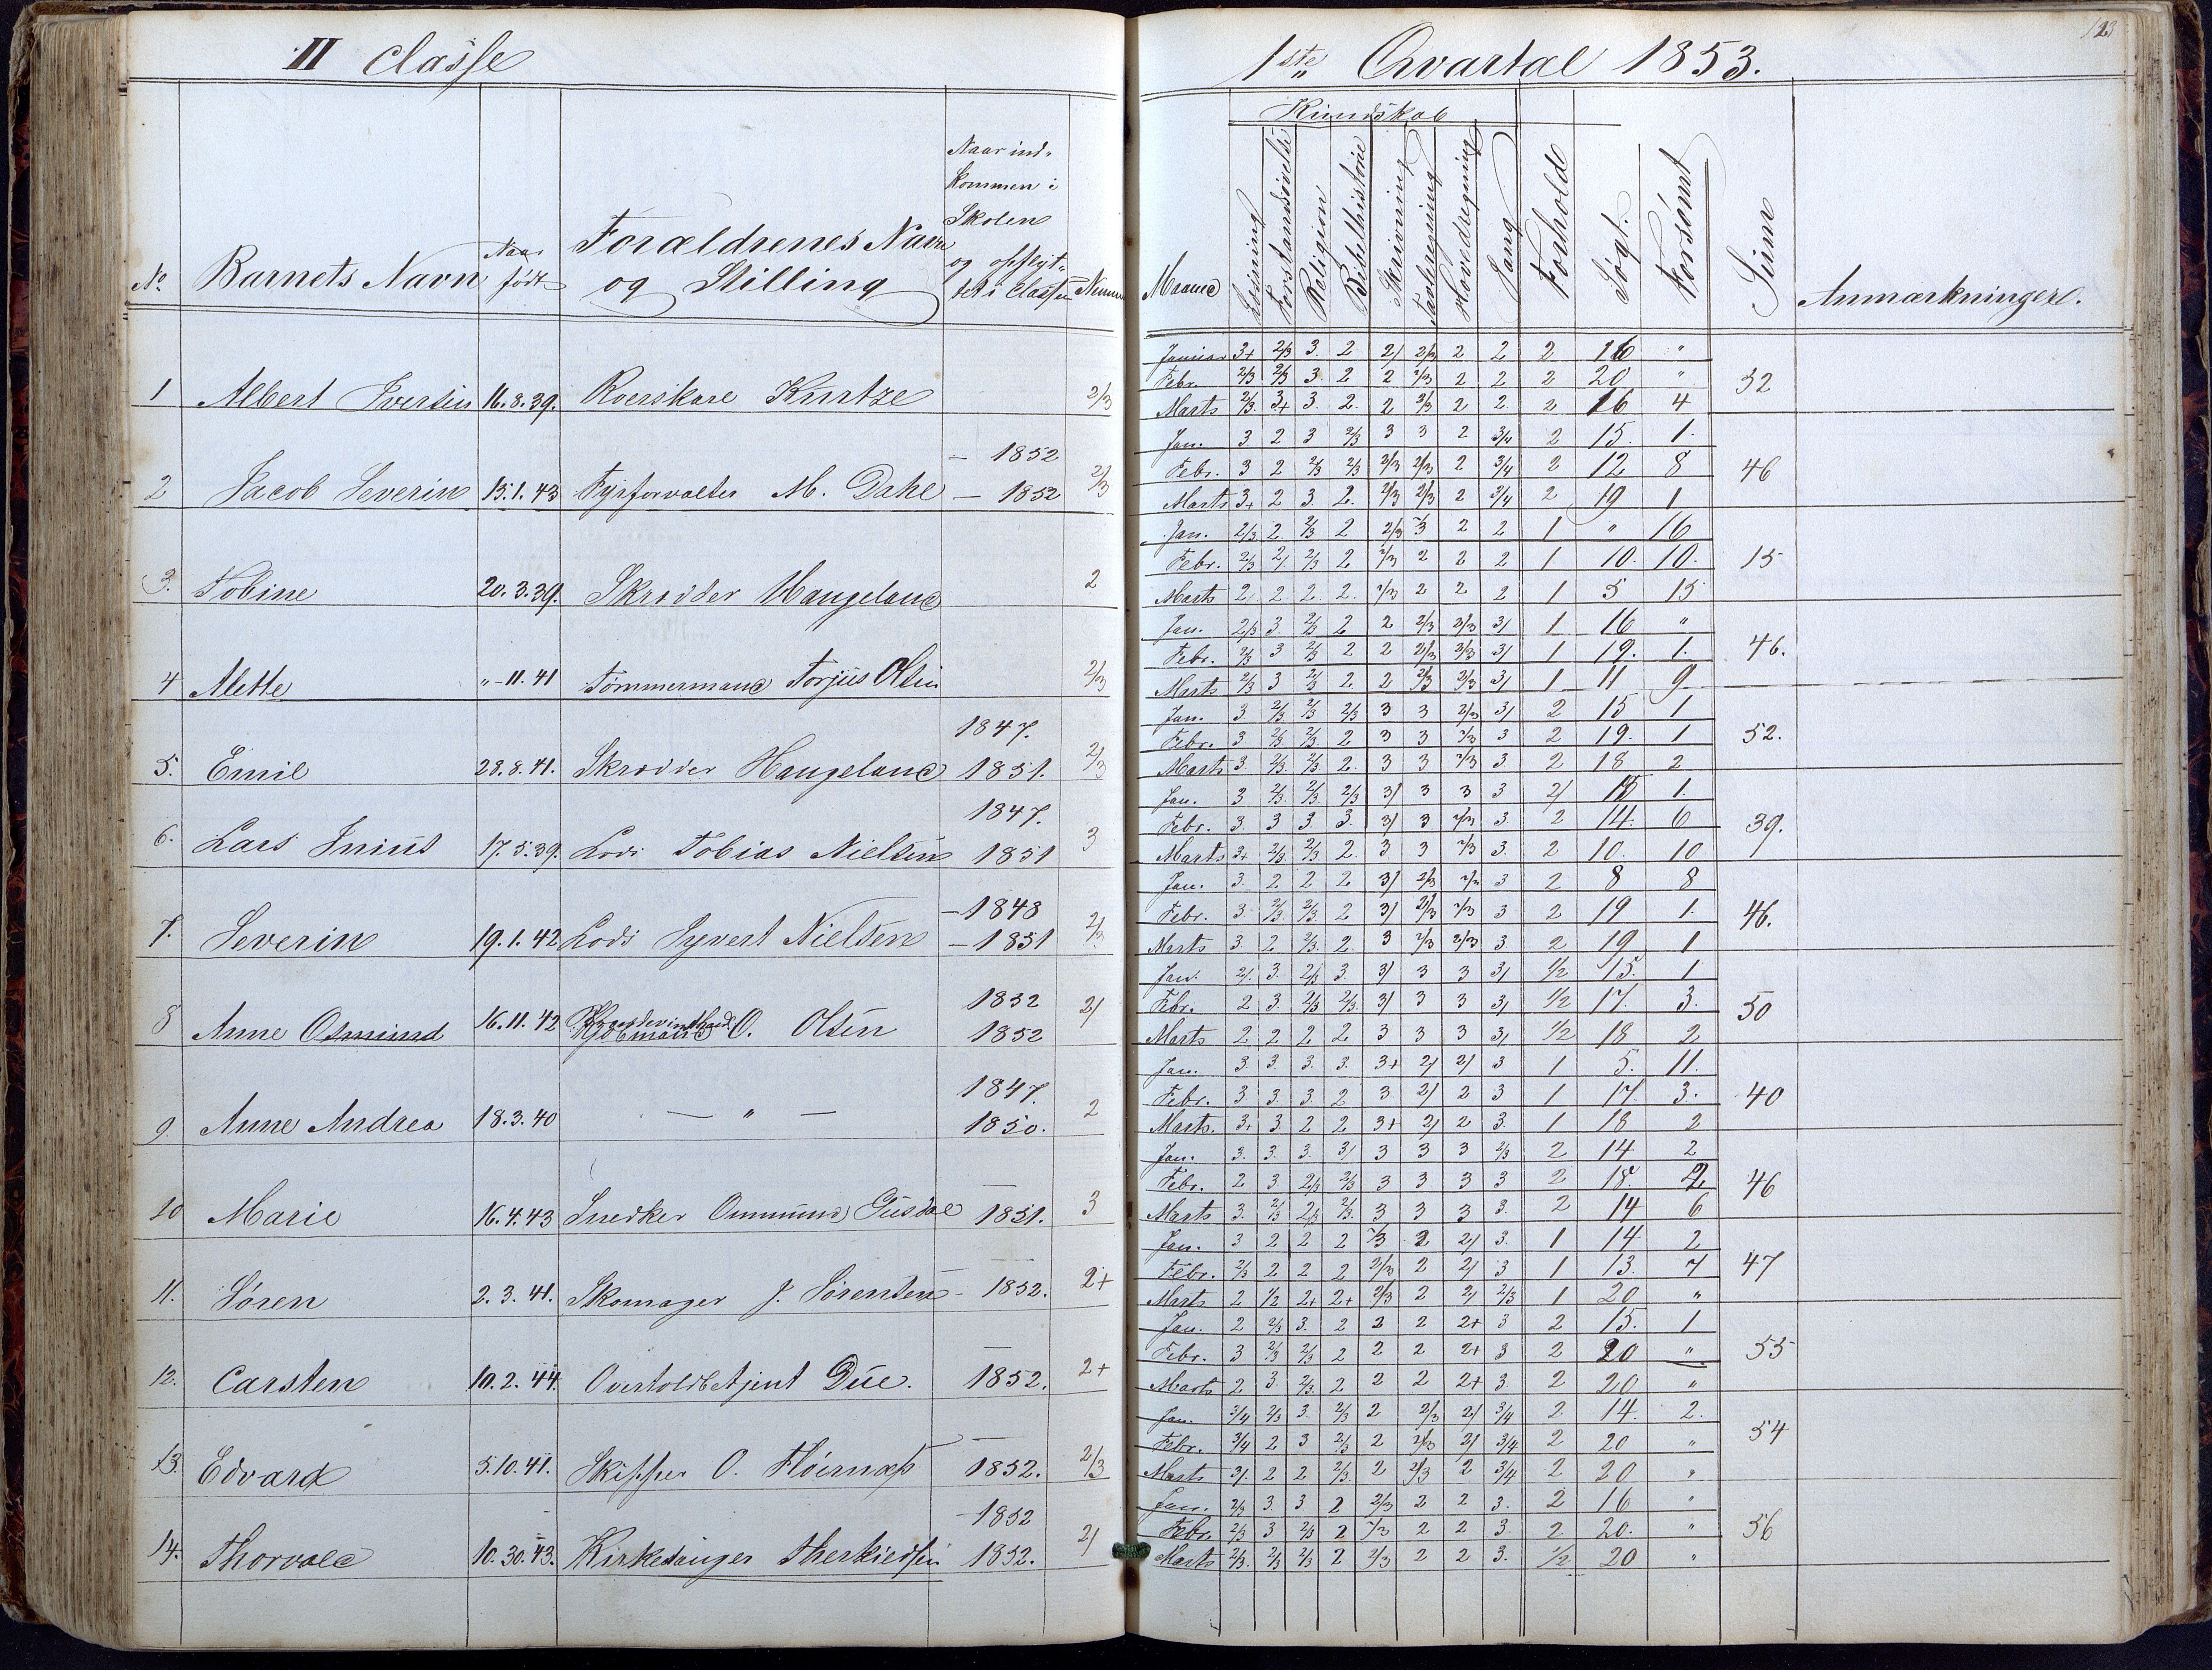 II Classe
No. Barnets Navn Naar født Forældrenes Navn og Stilling Naar indkommen i Skolen og opflyttet i Classen
1 Albert Iversen 16.8.39. Roerskare Kurtze 2/3
– 1852
2 Jacob Severin 15.1.43 Fyrforvalter M. Dahl – 1852 2/3
3. Tobine 20.3.39. Skrædder Haugeland 2
4 Mette "-11.41 Tømmermand Torjus Olsen 2/3
1847.
5. Emil 28.8.41. Skrædder Haugeland 1851. 2/3
1847.
6. Lars Junius 17.5.39. Lods Tobias Nielsen 1851 3
– 1848
7. Severin 19.1.42 Lods Syvert Nielsen – 1851 2/3
1852
8 Anne Osmund 16.11.42 O. Olsen 1852 2/
1847.
9. Anne Andrea 18.3.40 — " — 1850. 2
10 Marie 16.4.43 Snedker Ommund Gusdal 1851. 3
11. Søren 2.3.41. Skomager J. Sørensen – 1852. 2+
12. Carsten 10.2.44. Overtoldbetjent Due. 1852. 2+
13. Edvard 5.10.41. Skipper O. 1852. 2/3
– 1852
14. Thorvald 10.30.43. Kirkesanger Therkiedsen 1852. 2/
123
1ste Qvartal 1853.
Kundskab
Maaned Læsning Forstandsøvelse Religion Bibelhistorie Skrivning Tavleregning Hovedregning Sang Forhold Søgt. Forsømt Summ Anmærkninger.
Januar 3+ 2/3 3. 2 2/ 2/3 2 2 2 16 "
Febr. 2/3 2/3 3. 2 2 2/3 2 2 2 20 " 52
Marts 2/3. 3+ 3. 2. 2 2/3 2 2. 2 16 4
Jan. 3. 2 3 2/3 3 3 2 3/4 2 15. 1.
Febr. 3 2 2/3 2/3 2/3 2/3 2 3/4 2 12 8 46
Marts 3+ 2 3. 2. 2/3 2/3 2 3/4 2 19 1
Jan. 2/3 2. 2/3 2 2/3 3 2 2 1 " 16
Febr. 2/3 2/ 2/3 2 2/3 2 2 2 1 10. 10. 15
Marts 2/ 2 2. 2. 2/3 2 2 2 1 5 15
Jan. 2/3 3. 2/3 2 2 2/3 2/3 3/ 1 16 "
Febr. 2/3 3 2/3 2 2 2/3 2/3 3/ 1 19. 1. 46.
Marts 2/3 3 2/3 2 2 2/3 2/3 3/ 1 11 9
Jan. 3. 2/3 2/3 2/3 3 3 2/3 3/ 2 15 1
Febr. 3 2/3 2/3 2 3 3 2/3 3 2 19. 1 52.
Marts 3 2/3 2/3 2. 3 3 2/3 3 2 18 2
Jan. 3 2/3. 2/3. 2/3 3/ 3 3 3 2/ 15 1.
Febr. 3. 3 3. 3. 3/ 3 2/3 3. 2 14. 6 39.
Marts 3+ 2/3 2/3 2. 3 3 2/3 3. 2 10. 10
Jan. 3. 2 2 2 3/ 2/3 2/3 3 2 8 8
Febr. 3. 2/3. 2/3. 2 3/ 2/3 2/3 3 2 19 1. 46.
Marts 3. 2 2/3. 2 3 2/3 2/3 3. 2 19 1
Jan. 2/. 3. 2/3 3. 3/ 3 3 3/ 1/2 15. 1
Febr. 2 3 2/3 2/3 3/ 3 3 3/ 1/2 17. 3. 50
Marts 2 2 2 2 3 3 3 3/ 1/2 18 2
Jan. 3. 3. 3. 3. 3+ 2/ 2/ 3 1 5. 11.
Febr. 3. 3. 3. 2 3 2/ 2 3 1 17. 3. 40
Marts. 3. 3 2 2 3+ 2/ 2 3. 1 18 2
Jan. 3. 3. 3. 3/ 3 3 3 2/3 2 14 2
Febr. 2 3 2/3 2/3 3 3 3 3 2 18. 2 46
Marts 3. 2/3 2/3 2/3. 3 3 3 3. 2 14 6
Jan. 3 2 2 2 2/3 2 2/ 3. 1 14 2
Febr. 2/3 2 2 2 2/3 2 2/ 3 1 13. 7 47
Marts 2 1/2 2+ 2+ 2/3 2 2/ 2/3 1 20 "
Jan. 2 2/3 3. 2 2 2 2+ 3 2 15. 1
Febr. 3 2/3 2/3 2 2 2 2+ 3 2 20 " 55
Marts 2 3. 2/3. 2 2 2 2+ 3. 2 20 "
Jan. 3/4 2/3 3. 2/3 2 2/3 2/ 3/4 2. 14. 2.
Febr. 3/4 2 3 2/3 2 2/3 2/ 3/4 2 20 " 54
Marts 3/. 2 2 2/3. 2 2/3 2 3/4 2 20 "
Jan. 2/3 3. 3. 2 2/3 2 2 3. 2 16 "
Febr. 2/3 3 2/3 2 2/3 2 2 3. 2 20. " 56
Marts 2/3. 2/3 2/3 2 2/3 2 2 3. 1/2 20 "